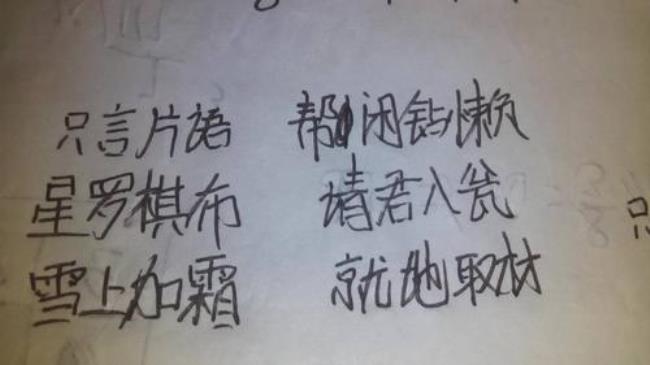 只言片語 帮闲钻懒
星罗棋布 请君入瓮
雪上加霜 就地取材
只